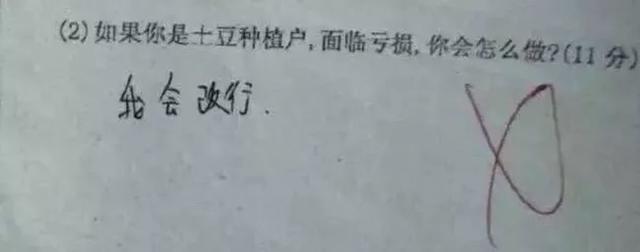 (2)如果你是土豆种植户,面临亏损,你会怎么做?(11分)
我会改行.